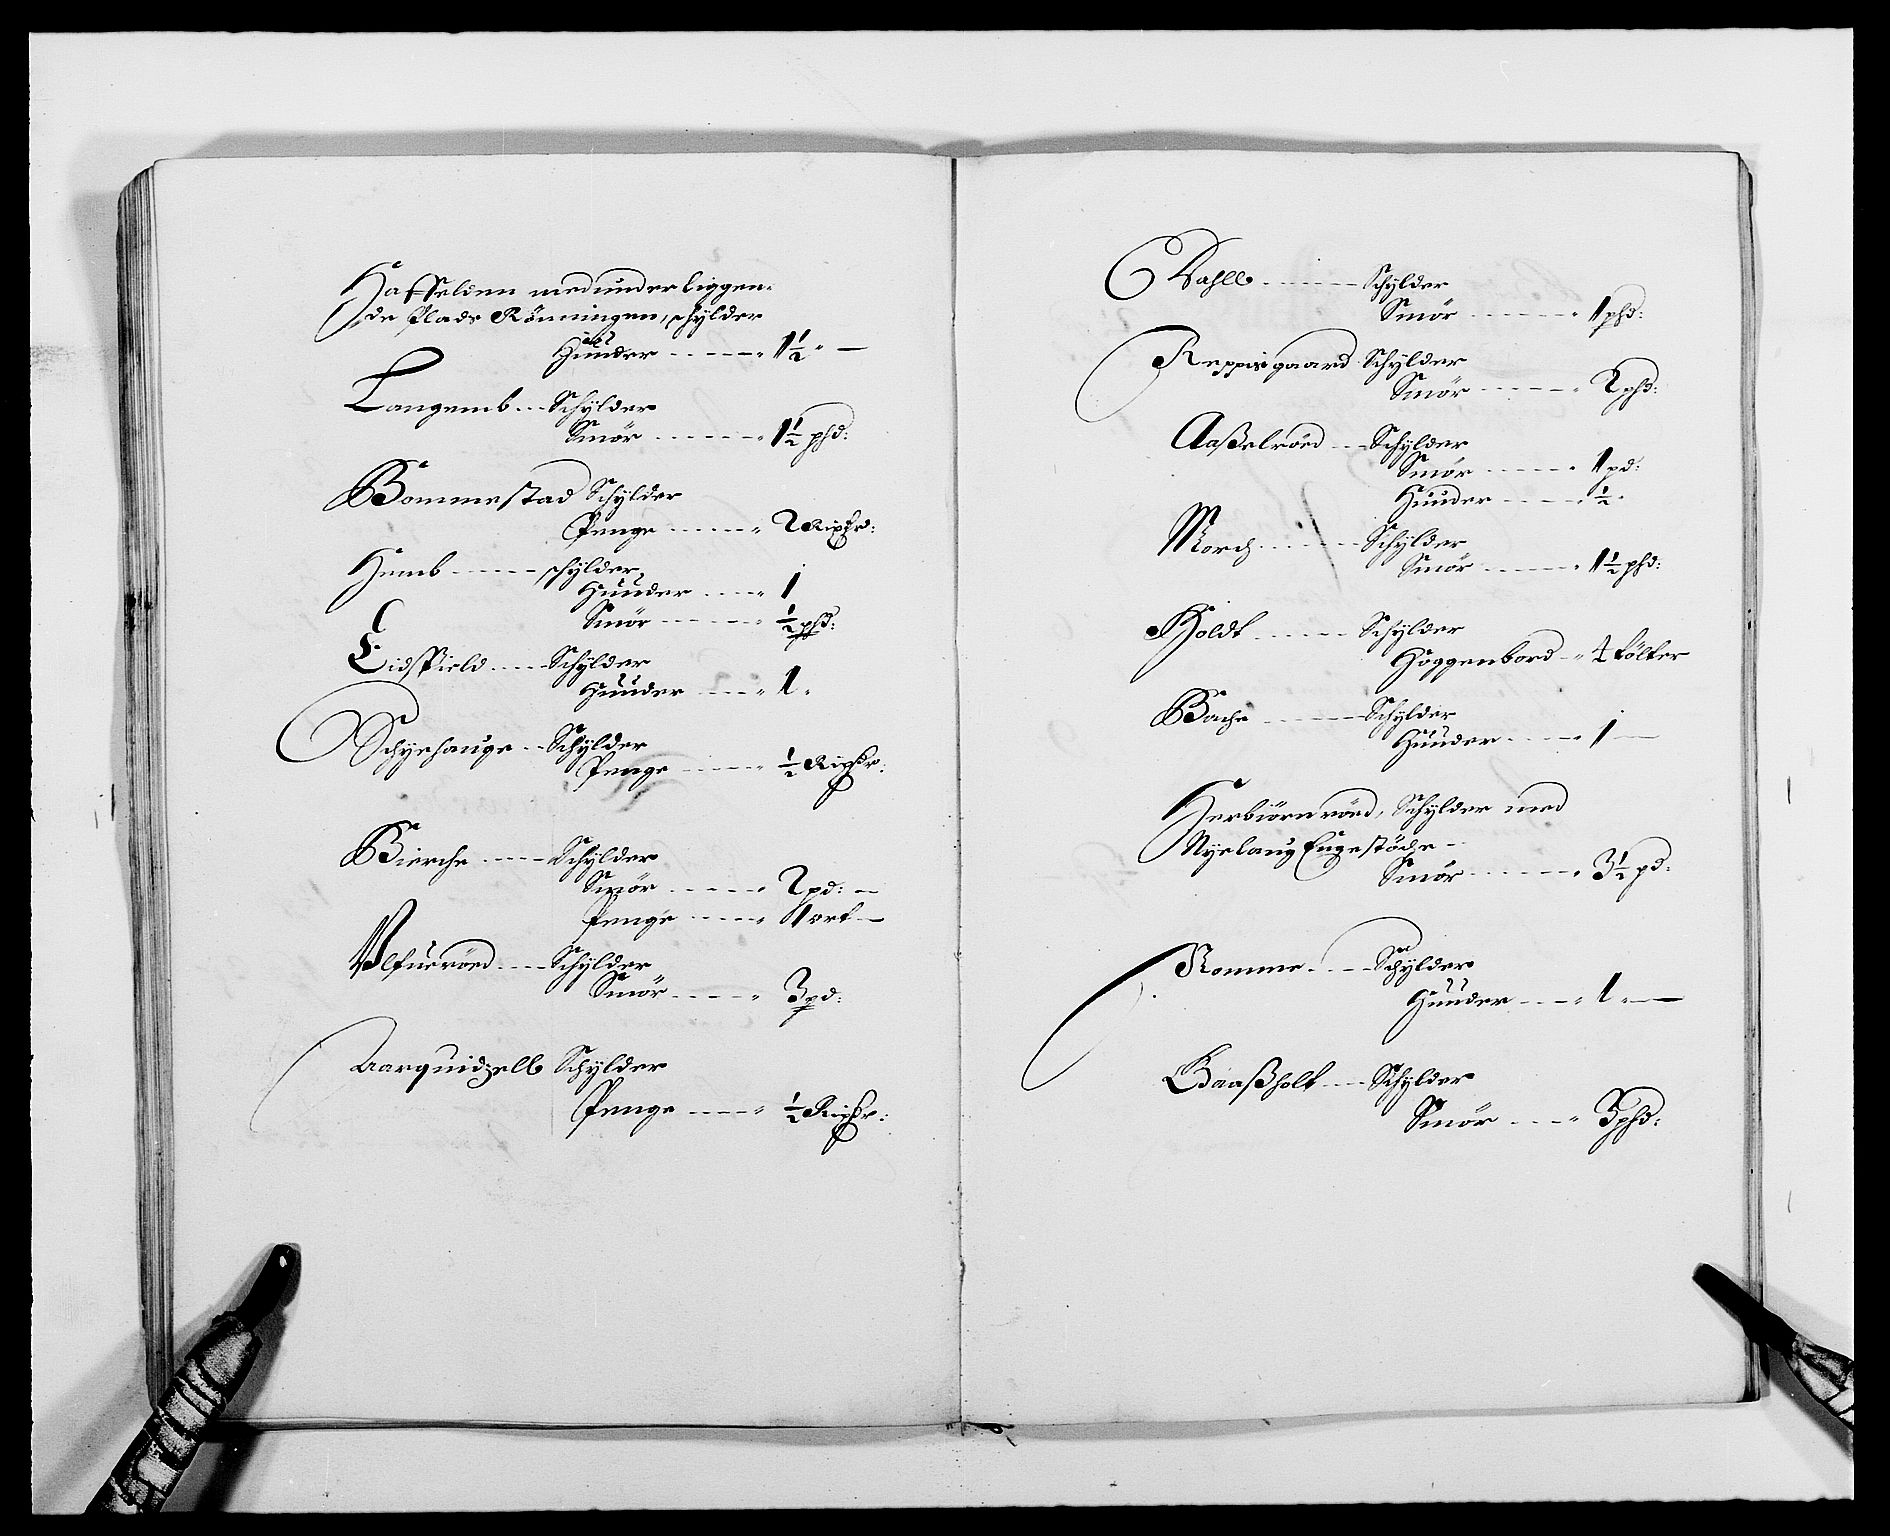 Hasselden med underliggen-
de Plads Rönningen, schylder
Huuder ------ 1½ -
Langemb --- Schylder
Smör ------ 1½ phd:
Bommestad Schylder
Penge ------ 2 Rixdr:
Hemb ------ schylder
Huuder ---- 1
Smör ------ ½ phd:
Eidsfield ---- Schylder
Huuder ---- 1
Schyehauge -- Schylder
Penge ------ ½ Rixdr:
Bierche ----- Schylder
Smör ------ 2 pd: -
Penge ------ 1 ort -
Ulfueröed ---- Schylder
Smör ------ 3 pd:
Aarquidzell Schylder
Penge ------ ½ Rixdr:
Dahll ------- Schylder
Smör ------ 1 phd:
Reppisgaard Schylder
Smör ------ 2 phd:
Aasselröed --- Schylder
Smör ------ 1 pd:
Huuder ------ ½
Morch ------ Schylder
Smör ------ 1½ phd:
Holdt ------ Schylder
Hoggenbord -- 4 tölfter
Bache ------ Schylder
Huuder ----- 1 -
Herbiörnröed, Schylder med
Nyelaug Engestöche -
Smör ------ 3½ pd:
Romme ---- Schylder
Huuder ---- 1 -
Baaßholt ---- Schylder
Smör ---- 3 phd: